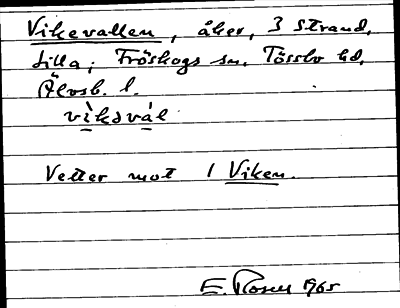 Vikevallen, åker, 3 Strand,
Lilla; Fröskogs sn. Tössbo hd.
Älvsb. l.
vìksvál
Vetter mot 1 Viken.
E. Rosell 1965